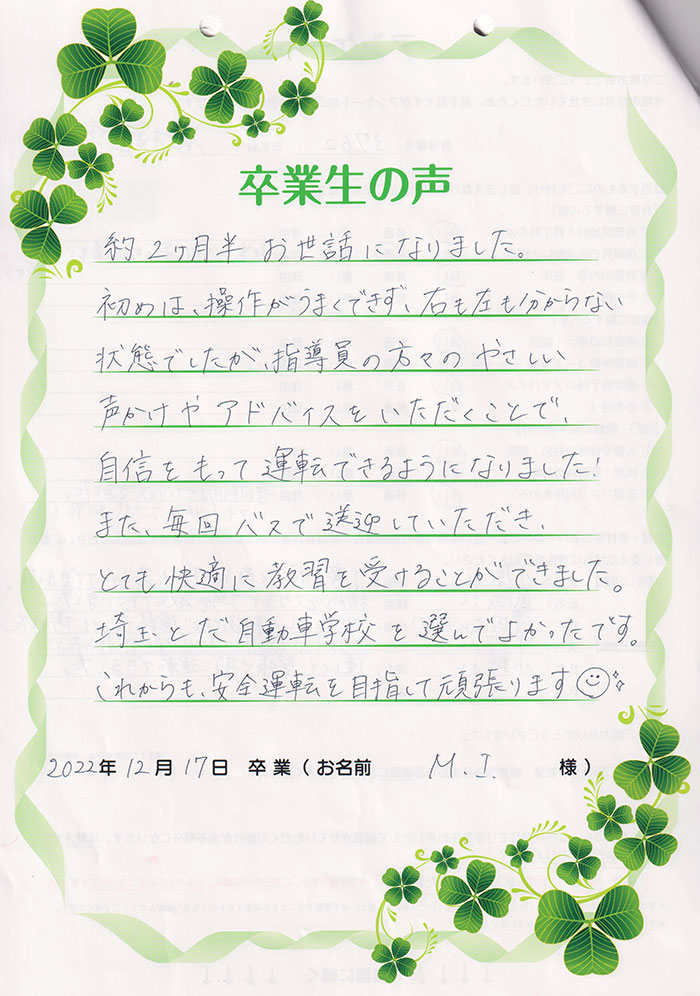 卒業生の声
約2ヶ月半お世話になりました。
初めは、操作がうまくできず、右も左も分からない
状態でしたが、指導員の方々のやさしい
声かけやアドバイスをいただくことで、
自信をもって運転できるようになりました!
また、毎回バスで送迎していただき、
とても快適に教習を受けることができました。
埼玉とだ自動車学校を選んでよかったです。
これからも、安全運転を目指して頑張ります
2022年12月17日 卒業(お名前 M.I 様)